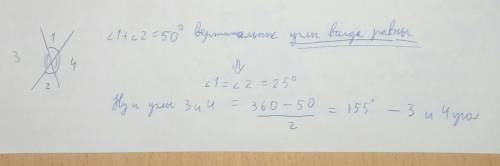 1
3
4
2
∠1+∠2=50° вертикальные углы всегда равны
⇓
∠1=∠2=25°
Ну и углы 3 и 4 = 360-50 / 2 = 155° - 3 и 4 угол